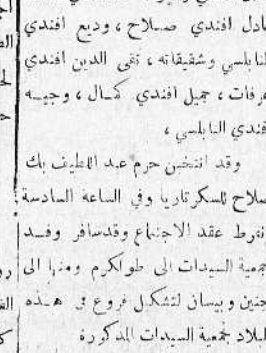 عادل افندي صلاح ، وديع افندي
النابلسي وشقيقاته ، تقي الدين افندي
عرفات ، جميل افندي كمال ، وجيه
افندي النابلسي ،
وقد انتخبن حرم عبد اللطيف بك
صلاح للسكرتاريا وفي الساعة السادسة
انفرط عقد الاجتماع وقد سافر وفد
جمعية السيدات الى طولكرم ومنها الى
جنين وبيسان لتشكيل فروع في هذه
البلاد لجمعية السيدات المذكورة